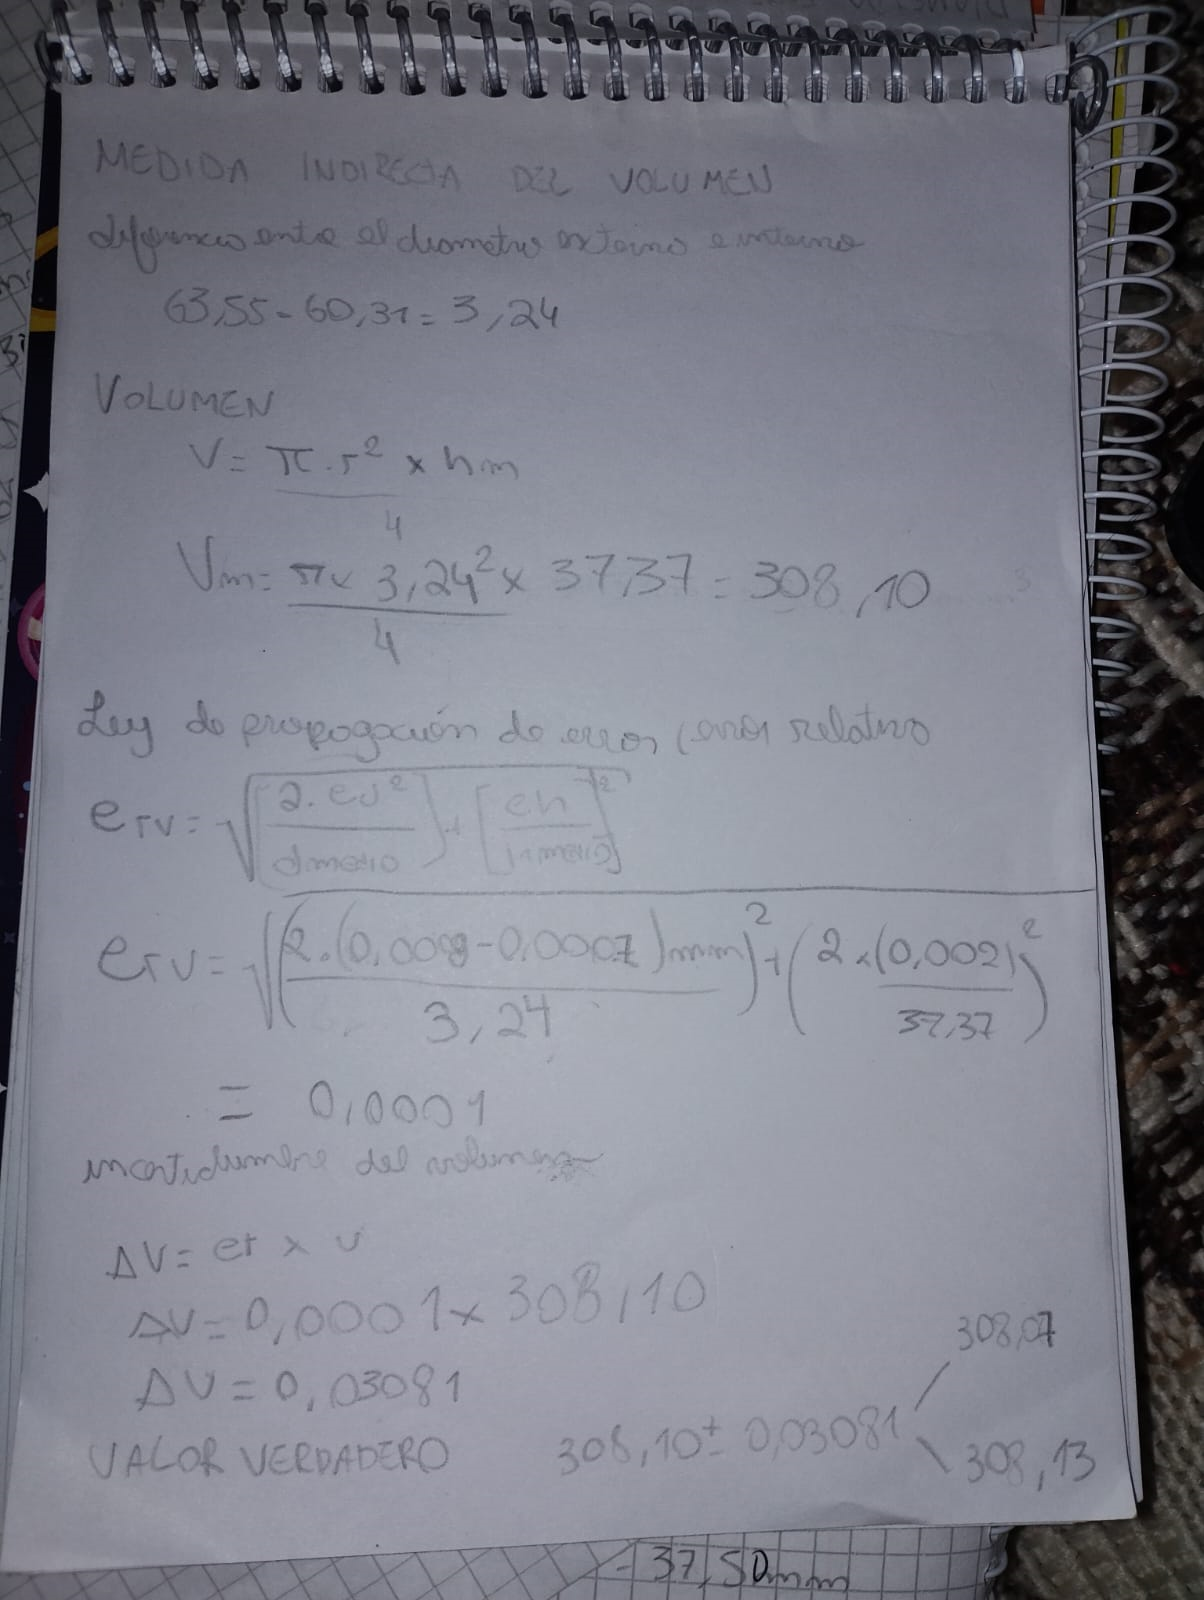 MEDIDA INDIRECTA DEL VOLUMEN
diferencia entre el diametro externo e interno
63,55 - 60,31 = 3,24
VOLUMEN
V = π . r² x hm
4
Vm = π x 3,24² x 37,37 = 308,10
4
Ley de propogación de error (error relativo
erv = √ [2. ed² / dmedio] + [eh / hmedio]²
erv = √ (2.(0,008-0,0007)mm / 3,24)² + (2 x (0,002) / 37,37)²
= 0,0001
incertidumbre del volumen
ΔV = er x v
ΔV = 0,0001 x 308,10
ΔV = 0,03081
308,07
VALOR VERDADERO 308,10 ± 0,03081
308,13
37,50mm